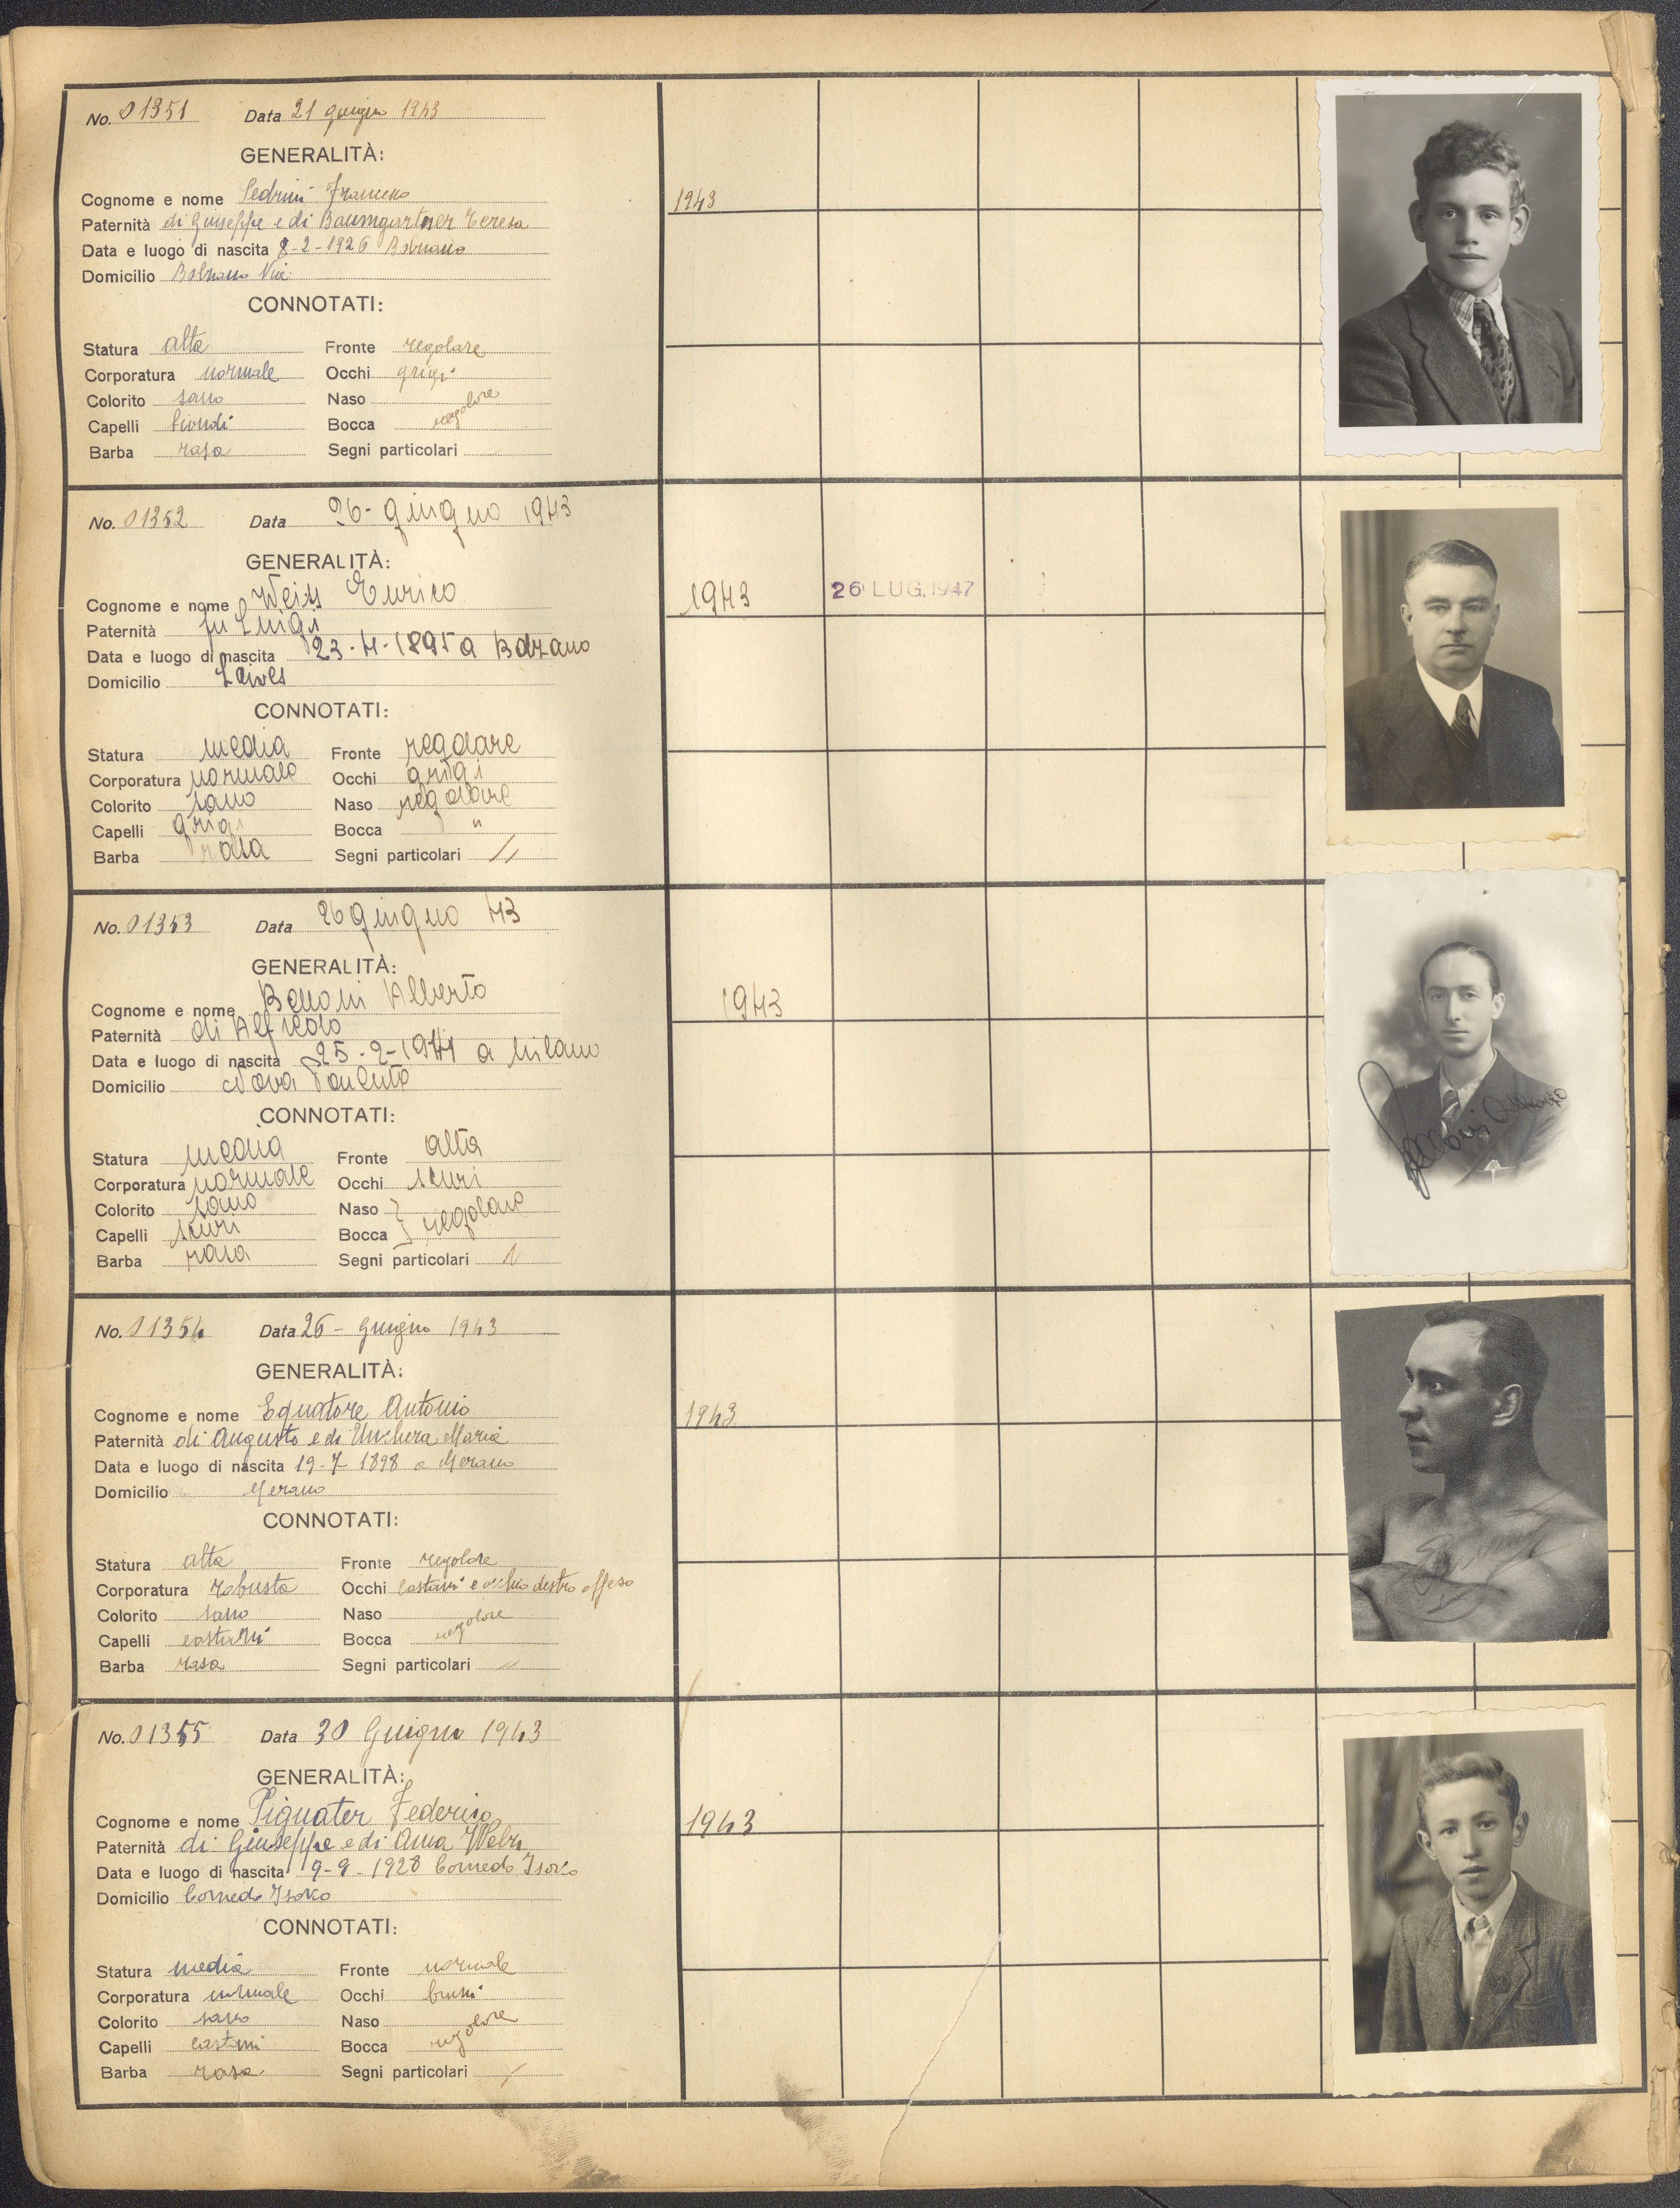 No. 01351 Data 21 giugno 1943
GENERALITÀ:
Cognome e nome Pedrini Francesco
Paternità di Giuseppe e di Baumgartner Teresa
Data e luogo di nascita 8-2-1926 Bolzano
Domicilio Bolzano Via
CONNOTATI:
Statura alta Fronte regolare
Corporatura normale Occhi grigi
Colorito sano Naso
Capelli biondi Bocca regolare
Barba rasa Segni particolari
1943
No. 01352 Data 26-giugno 1943
GENERALITÀ:
Cognome e nome Weiss Enrico
Paternità fu Luigi
Data e luogo di nascita 23-4-1895 a Bolzano
Domicilio Laives
CONNOTATI:
Statura media Fronte regolare
Corporatura normale Occhi grigi
Colorito sano Naso regolare
Capelli grigi Bocca "
Barba rasa Segni particolari //
1943 26 LUG. 1947
No. 01353 Data 26 giugno 43
GENERALITÀ:
Cognome e nome Belloni Alberto
Paternità di Alfredo
Data e luogo di nascita 25-2-1914 a Milano
Domicilio Nova Ponente
CONNOTATI:
Statura media Fronte alta
Corporatura normale Occhi scuri
Colorito sano Naso
Capelli scuri Bocca regolare
Barba rasa Segni particolari /
1943
No. 01354 Data 26- giugno 1943
GENERALITÀ:
Cognome e nome Equatore Antonio
Paternità di Augusto e di Maria
Data e luogo di nascita 19-7-1898 a Merano
Domicilio Merano
CONNOTATI:
Statura alta Fronte regolare
Corporatura robusta Occhi castani e occhio destro offeso
Colorito sano Naso
Capelli castani Bocca regolare
Barba rasa Segni particolari
1943
No. 01355 Data 30 Giugno 1943
GENERALITÀ:
Cognome e nome Pignater Federico
Paternità di Giuseppe e di Anna
Data e luogo di nascita 9-9-1928 Cornedo Isarco
Domicilio Cornedo Isarco
CONNOTATI:
Statura media Fronte normale
Corporatura normale Occhi bruni
Colorito sano Naso
Capelli castani Bocca regolare
Barba rasa Segni particolari /
1943